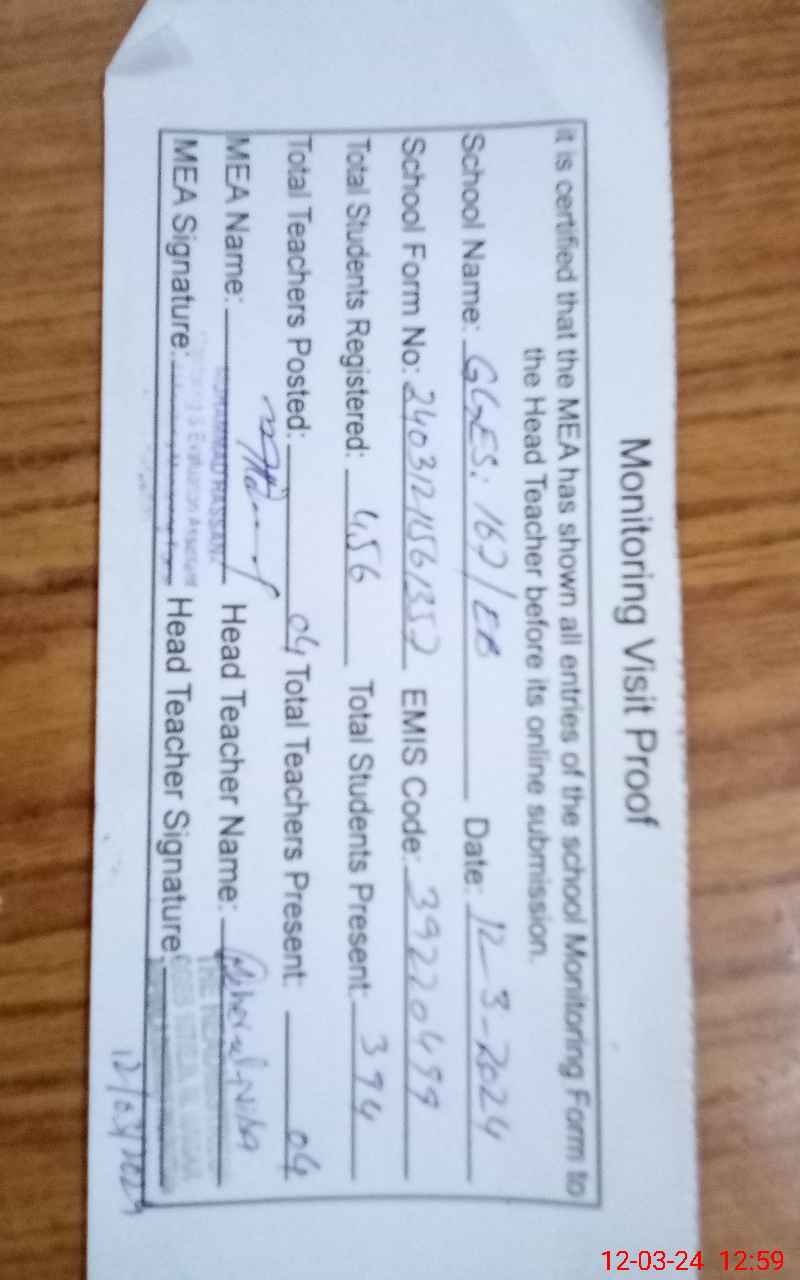 Monitoring Visit Proof
it is certified that the MEA has shown all entries of the school Monitoring Form to
the Head Teacher before its online submission.
School Name: GGES: 167/EB Date: 12-3-2024
School Form No: EMIS Code: 39220499
Total Students Registered: 456 Total Students Present: 394
Total Teachers Posted: 04 Total Teachers Present: 04
MEA Name: Head Teacher Name:
MUHAMMAD HASSAN
Monitoring & Evaluation Assistant
MEA Signature: Head Teacher Signature:
12/03/2024
12-03-24 12:59